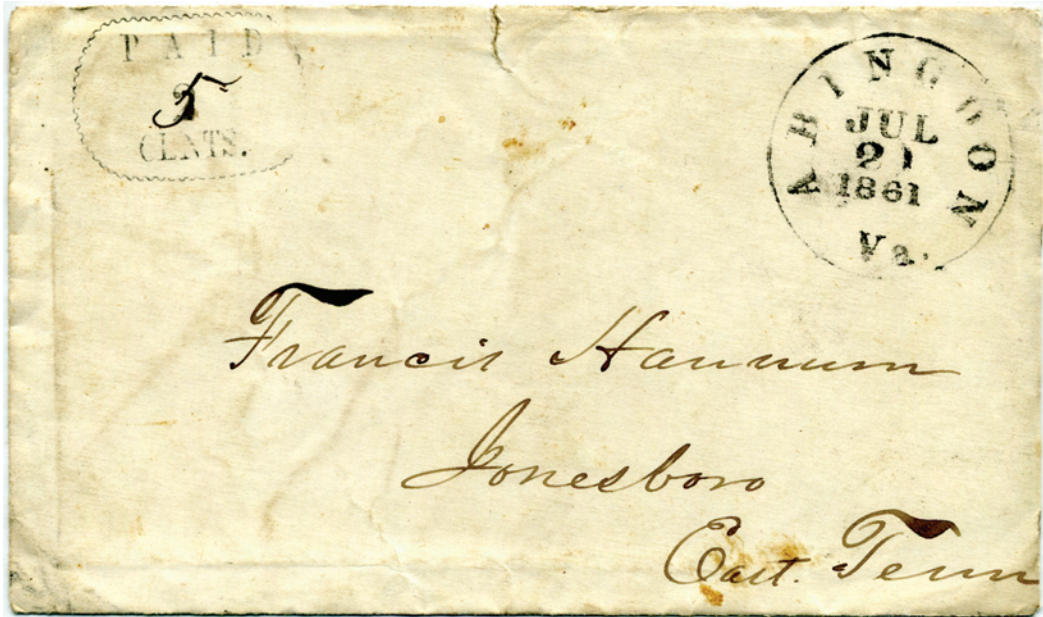 PAID
5
CENTS.
ABINGDON
JUL
21
1861
Va.
Francis Hannum
Jonesboro
East. Tenn